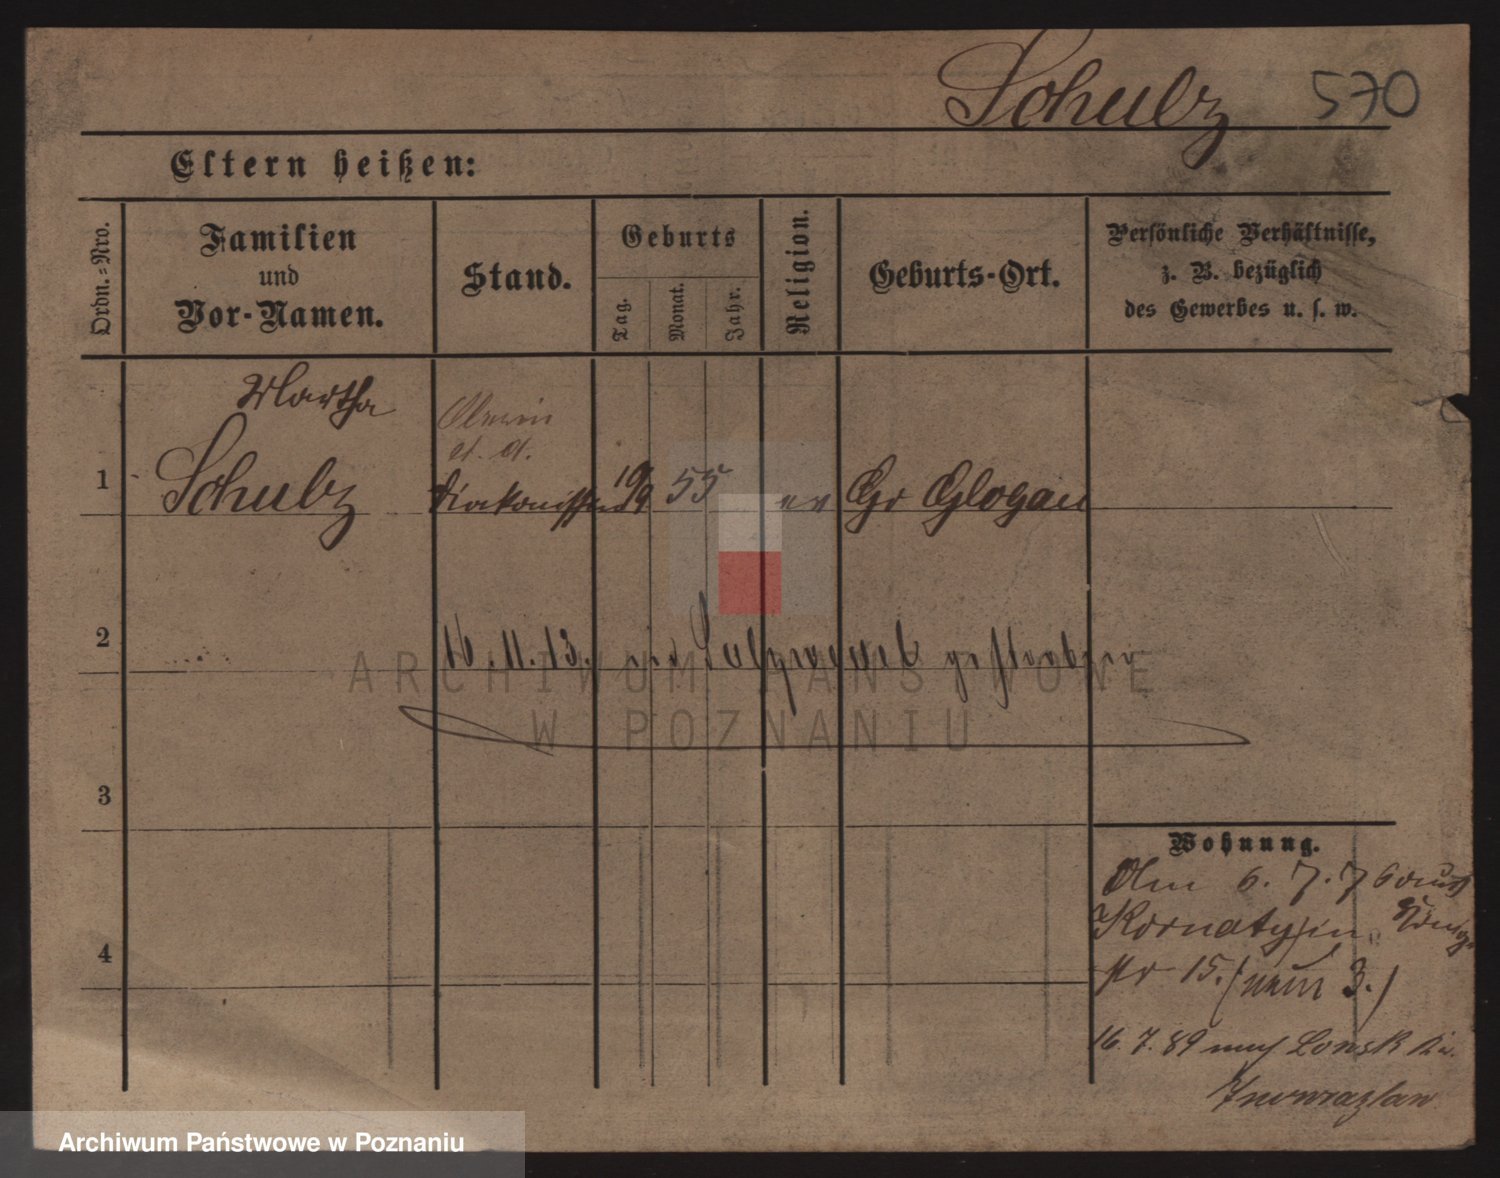 Schulz 570
Eltern heißen:
Ordn.=Nro.
Familien
und
Vor-Namen.
Stand.
Geburts
Tag.
Monat.
Jahr.
Religion.
Geburts-Ort.
Persönliche Verhältnisse,
z. B. bezüglich
des Gewerbes u. s. w.
Martha
1 Schulz
19/9 55 ev Gr Glogau
2 16.11.13. in gestorben
ARCHIWUM PAŃSTWOWE
W POZNANIU
3
Wohnung.
6. 7. 76
4
str 15. (nun 3.)
16. 7. 89 nach Lonsk Kr.
Inowrazlaw
Archiwum Państwowe w Poznaniu